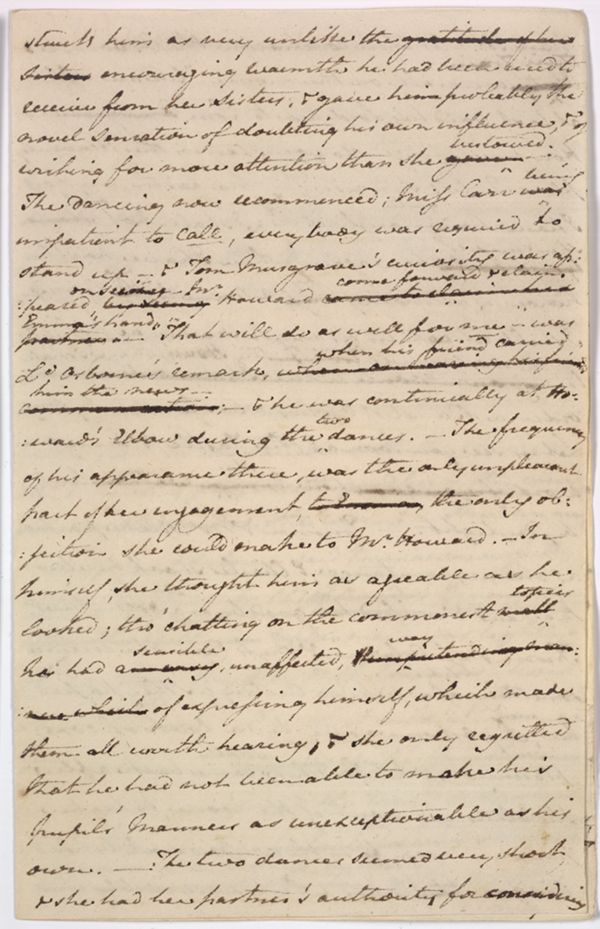 struck him as very unlike the gratitude of her
Sisters encouraging warmth he had been used to
receive from her Sisters, & gave him probably the
novel sensation of doubting his own influence, & of
bestowed.
wishing for more attention than she gave.
being
The dancing now recommenced; Miss Carr was
impatient to call, everybody was required to
stand up — & Tom Musgrave's curiosity was ap:
on seeing Mr. come forward & claim
:peased Howard came to claim his
Emma's hand,
partner — "That will do as well for me" — was
when his friend carried
Ld. Osborne's remark, when
him the news —
communication; — & he was continually at Ho:
two
:ward's Elbow during the dances. — The frequency
of his appearance there, was the only unpleasant
part of her engagement, to Emma, the only ob:
:jection she could make to Mr. Howard. — In
himself, she thought him as agreable as he
topics
looked; tho' chatting on the commonest
sensible way
he had an easy, unaffected, unpretending man:
:ner which of expressing himself, which made
them all worth hearing, & she only regretted
that he had not been able to make his
pupil's Manners as unexceptionable as his
own. — The two dances seemed very short,
& she had her partner's authority for considering